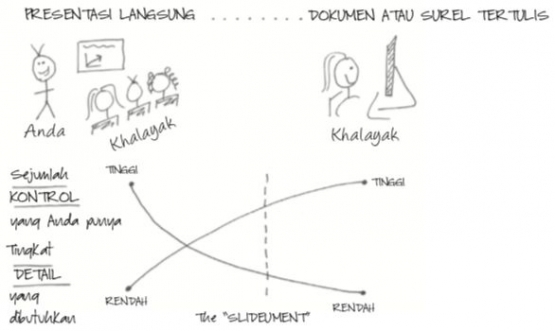 PRESENTASI LANGSUNG ........ DOKUMEN ATAU SUREL TERTULIS
Anda
Khalayak
Khalayak
Sejumlah
KONTROL
yang Anda punya
Tingkat
DETAIL
yang
dibutuhkan
TINGGI
TINGGI
RENDAH
RENDAH
The "SLIDEUMENT"